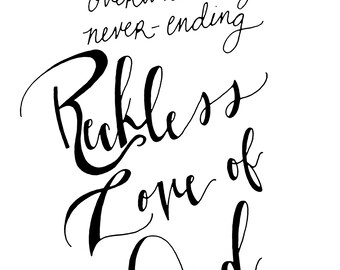 never-ending
Reckless
Love of
God